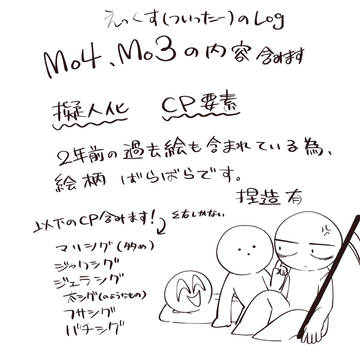 えっくす(ついったー)のLog
Mo4、Mo3の内容含みます
擬人化 CP要素
2年前の過去絵も含まれている為、
絵柄 ばらばらです。
捏造 有
以下のCP含みます!
左右しかない
マリシグ(多め)
ジャックシグ
ジェラシグ
太シグ(のようなもの)
フサシグ
バチシグ